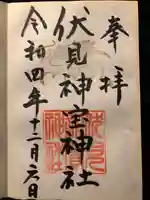 奉拝
伏見神宝神社
令和四年十二月六日